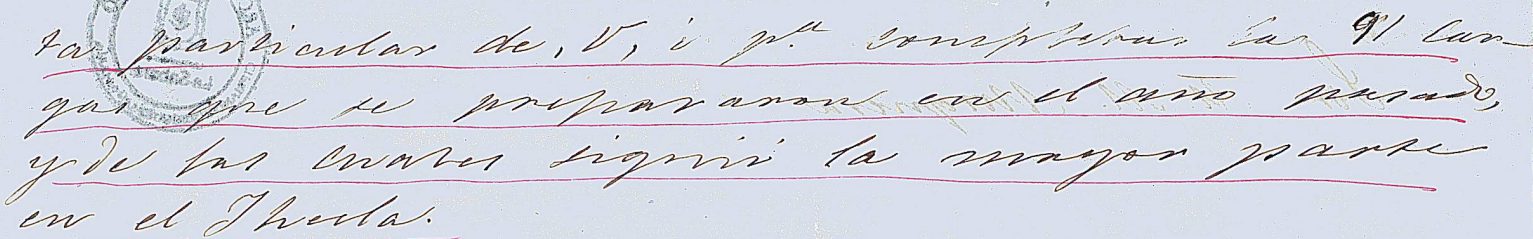 ta particular de, V, i pª completar las 91 car-
gas que se prepararon en el año pasado,
y de las cuales siguió la mayor parte
en el Thecla.